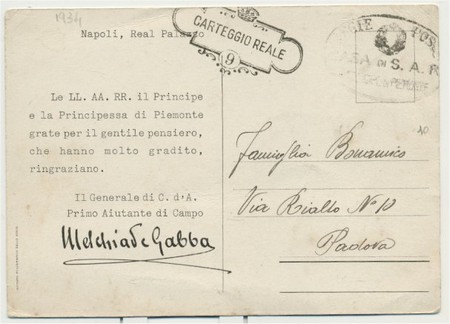 1934
Napoli, Real Palazzo
CARTEGGIO REALE
9
CASA DI S. A. R.
Le LL. AA. RR. il Principe
e la Principessa di Piemonte
grate per il gentile pensiero,
che hanno molto gradito,
ringraziano.
Il Generale di C. d'A.
Primo Aiutante di Campo
Melchiade Gabba
Famiglia Bonamico
Via Rialto Nº 10
Padova